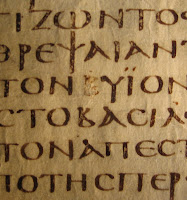 ΓΙΖΩΝΤΟΣ
ΘΡΕΨΑΙΑΝΤ
ΤΟΝ ΥΪΟΝ
ΣΤΟΒΑΣΙΑ
ΤΟΝΑΠΕΣΤ
ΠΟΤΗΣΠΕΡ